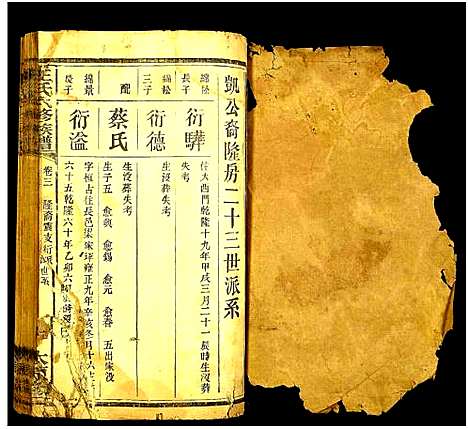 凱公裔隆房二十三世派系
綿松
長子
衍驊
住大西門乾隆十九年甲戌三月二十一辰時生沒葬
失考
綿松
三子
衍德
生沒葬失考
配
蔡氏
生沒葬失考
子五 愈錫 愈元 愈春 五出家沒
綿景
長子
衍溢
字恆占住長邑梁家坪雍正九年辛亥冬月十六
六十五乾隆六十年乙卯六
氏六修族譜
卷三
隆裔震支衍派世系